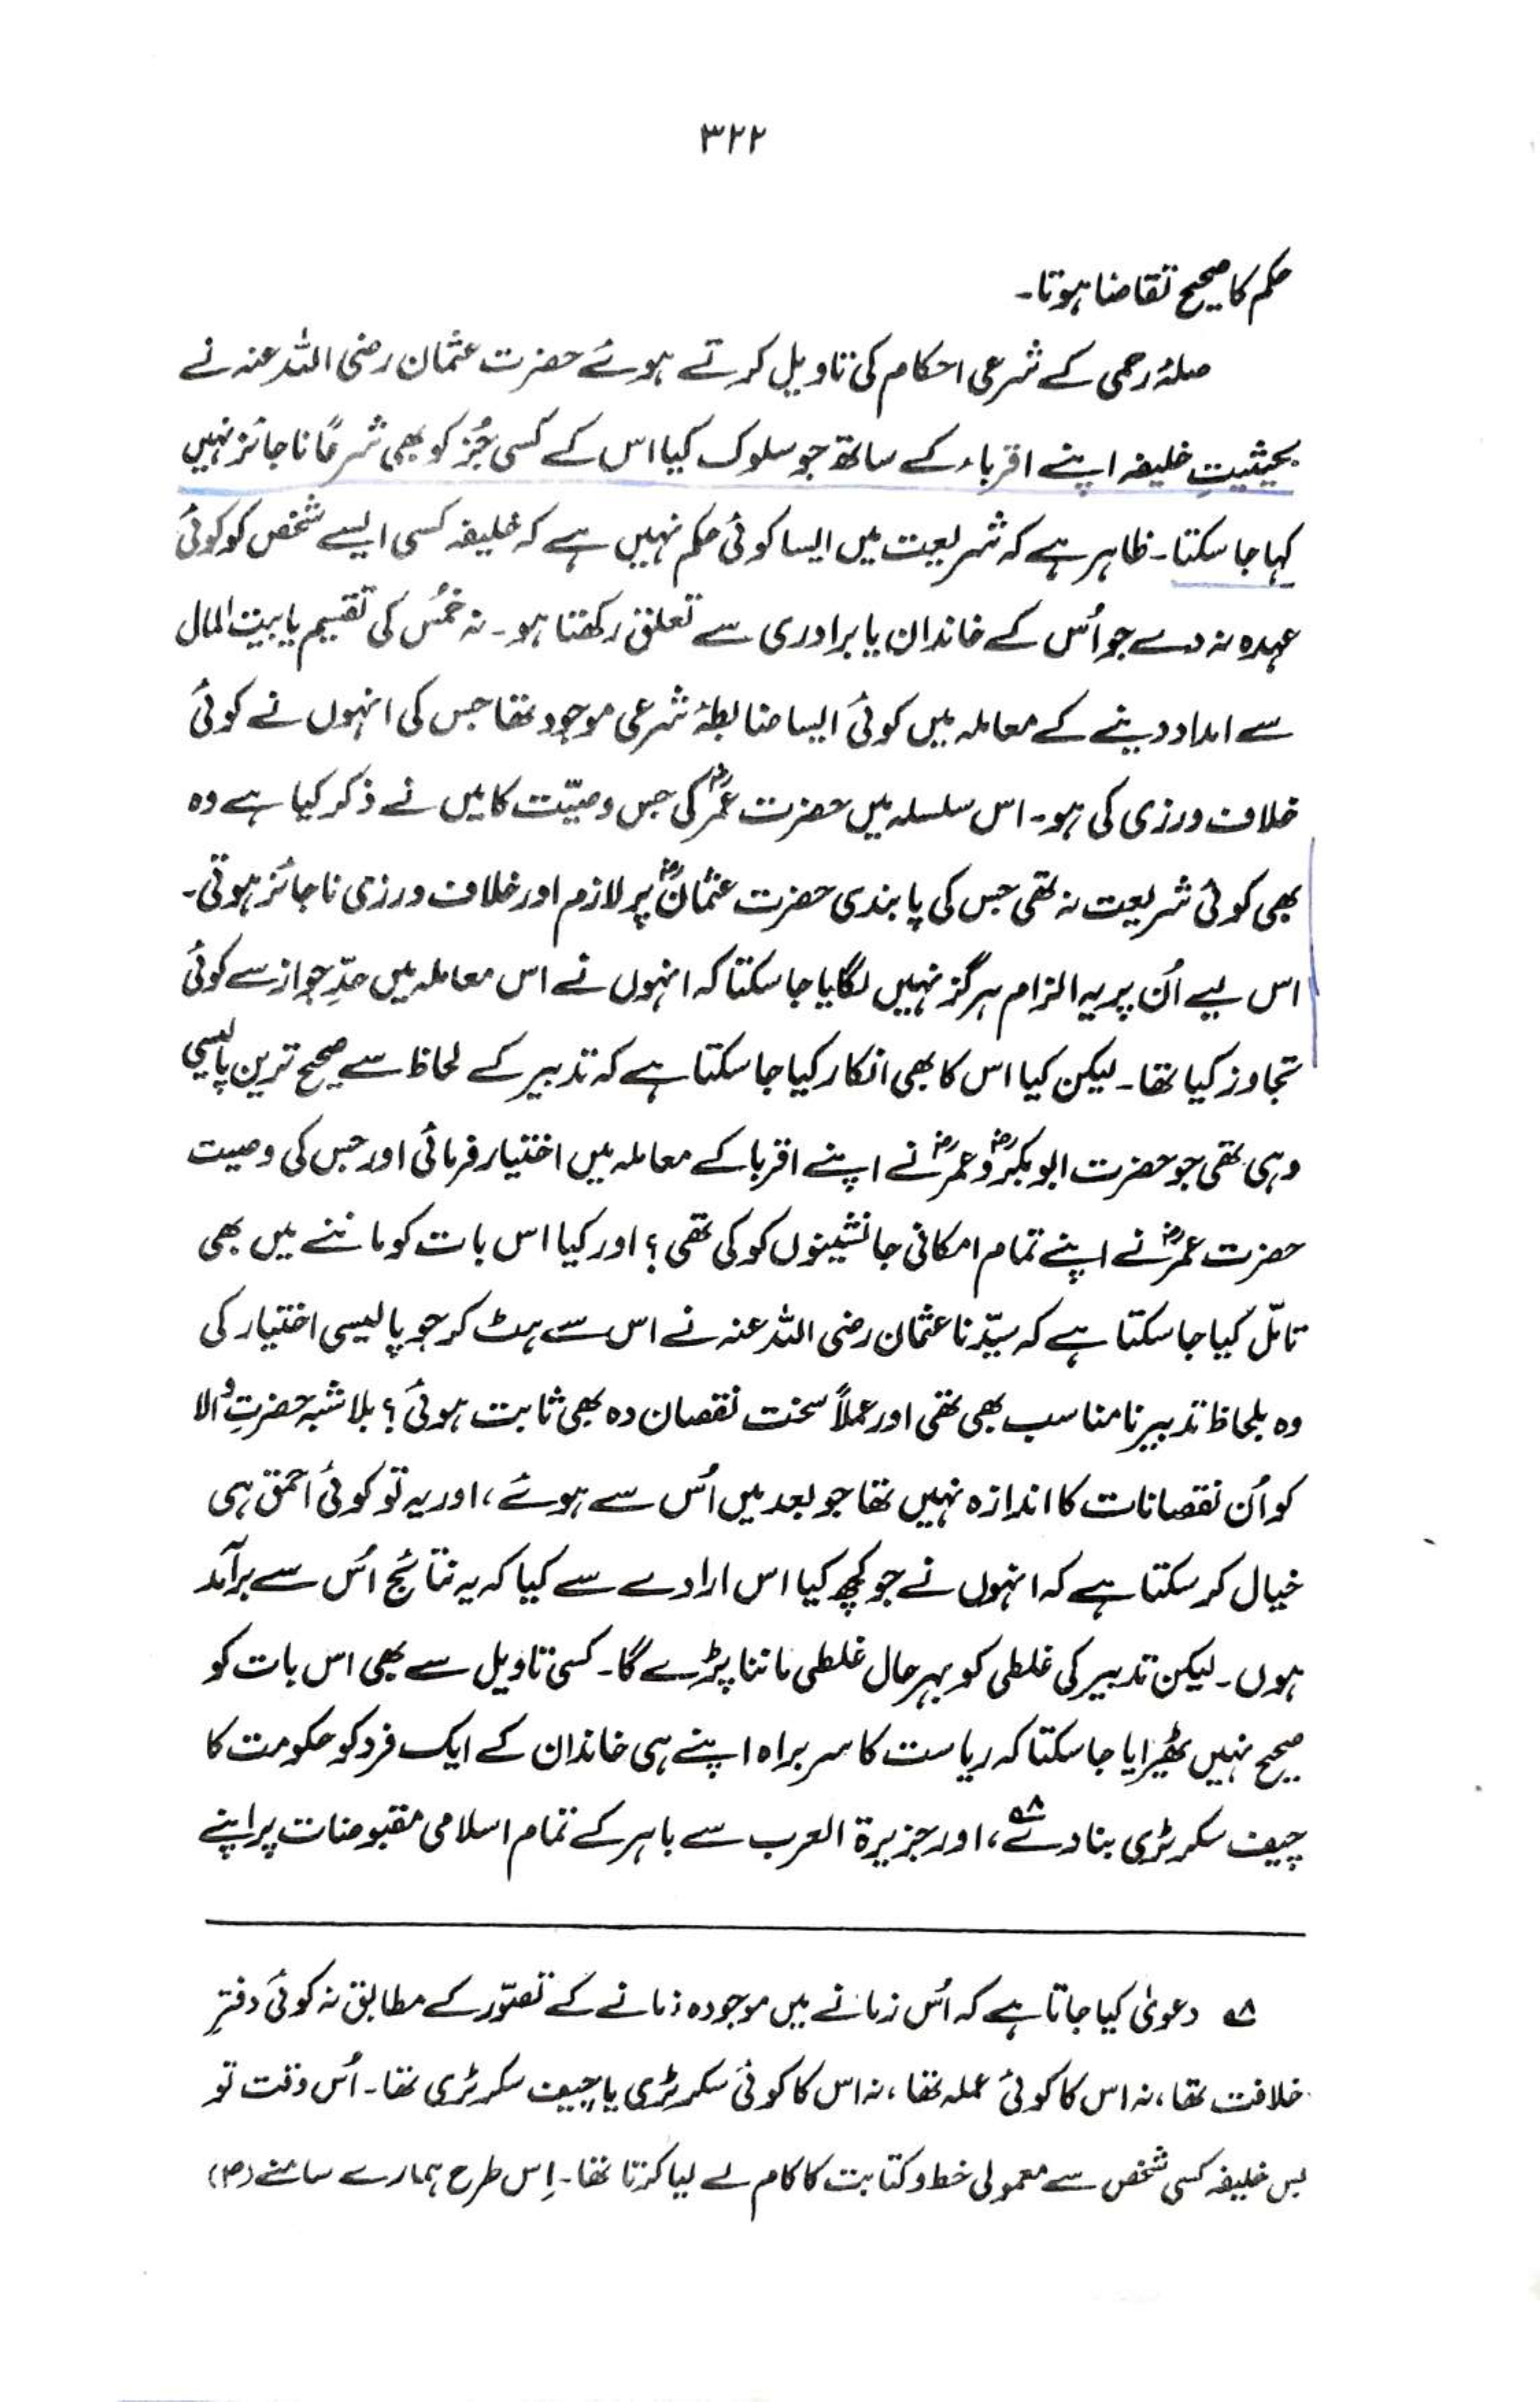 ۳۲۲
حکم کا صحیح تقاضا ہوتا۔
صلۂ رحمی کے شرعی احکام کی تاویل کرتے ہوئے حضرت عثمان رضی اللہ عنہ نے
بحیثیتِ خلیفہ اپنے اقرباء کے ساتھ جو سلوک کیا اس کے کسی جُز کو بھی شرعًا ناجائز نہیں
کہا جا سکتا۔ ظاہر ہے کہ شریعت میں ایسا کوئی حکم نہیں ہے کہ خلیفہ کسی ایسے شخص کو کوئی
عہدہ نہ دے جو اُس کے خاندان یا برادری سے تعلق رکھتا ہو۔ نہ خمُس کی تقسیم یا بیت المال
سے امداد دینے کے معاملہ میں کوئی ایسا ضابطۂ شرعی موجود تھا جس کی انہوں نے کوئی
خلاف ورزی کی ہو۔ اس سلسلہ میں حضرت عمرؓ کی جس وصیّت کا میں نے ذکر کیا ہے وہ
بھی کوئی شریعت نہ تھی جس کی پابندی حضرت عثمانؓ پر لازم اور خلاف ورزی ناجائز ہوتی۔
اس لیے اُن پر یہ الزام ہرگز نہیں لگایا جا سکتا کہ انہوں نے اس معاملہ میں حدِّ جواز سے کوئی
تجاوز کیا تھا۔ لیکن کیا اس کا بھی انکار کیا جا سکتا ہے کہ تدبیر کے لحاظ سے صحیح ترین پالیسی
وہی تھی جو حضرت ابوبکرؓ و عمرؓ نے اپنے اقربا کے معاملہ میں اختیار فرمائی اور جس کی وصیت
حضرت عمرؓ نے اپنے تمام امکانی جانشینوں کو کی تھی؟ اور کیا اس بات کو ماننے میں بھی
تامّل کیا جا سکتا ہے کہ سیّدنا عثمان رضی اللہ عنہ نے اس سے ہٹ کر جو پالیسی اختیار کی
وہ بلحاظ تدبیر نامناسب بھی تھی اور عملاً سخت نقصان دہ بھی ثابت ہوئی؟ بلا شبہ حضرتِ والا
کو اُن نقصانات کا اندازہ نہیں تھا جو بعد میں اُس سے ہوئے، اور یہ تو کوئی احمق ہی
خیال کر سکتا ہے کہ انہوں نے جو کچھ کیا اس ارادے سے کیا کہ یہ نتائج اُس سے برآمد
ہوں۔ لیکن تدبیر کی غلطی کو بہرحال غلطی ماننا پڑے گا۔ کسی تاویل سے بھی اس بات کو
صحیح نہیں ٹھیرایا جا سکتا کہ ریاست کا سربراہ اپنے ہی خاندان کے ایک فرد کو حکومت کا
چیف سکرٹری بنا دے۸؂، اور جزیرۃ العرب سے باہر کے تمام اسلامی مقبوضات پر اپنے
۸؂ دعویٰ کیا جاتا ہے کہ اُس زمانے میں موجودہ زمانے کے تصوّر کے مطابق نہ کوئی دفترِ
خلافت تھا، نہ اس کا کوئی عملہ تھا، نہ اس کا کوئی سکرٹری یا چیف سکرٹری تھا۔ اُس وقت تو
بس خلیفہ کسی شخص سے معمولی خط و کتابت کا کام لے لیا کرتا تھا۔ اِس طرح ہمارے سامنے